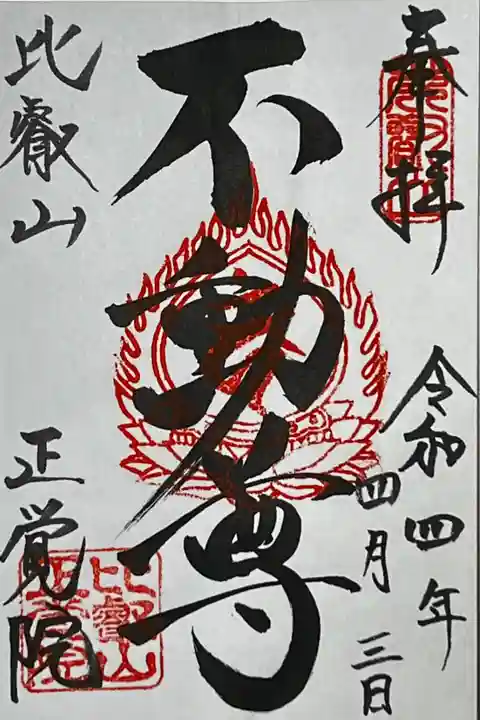 奉拝
令和四年
四月三日
不動尊
比叡山
正覚院
比叡山